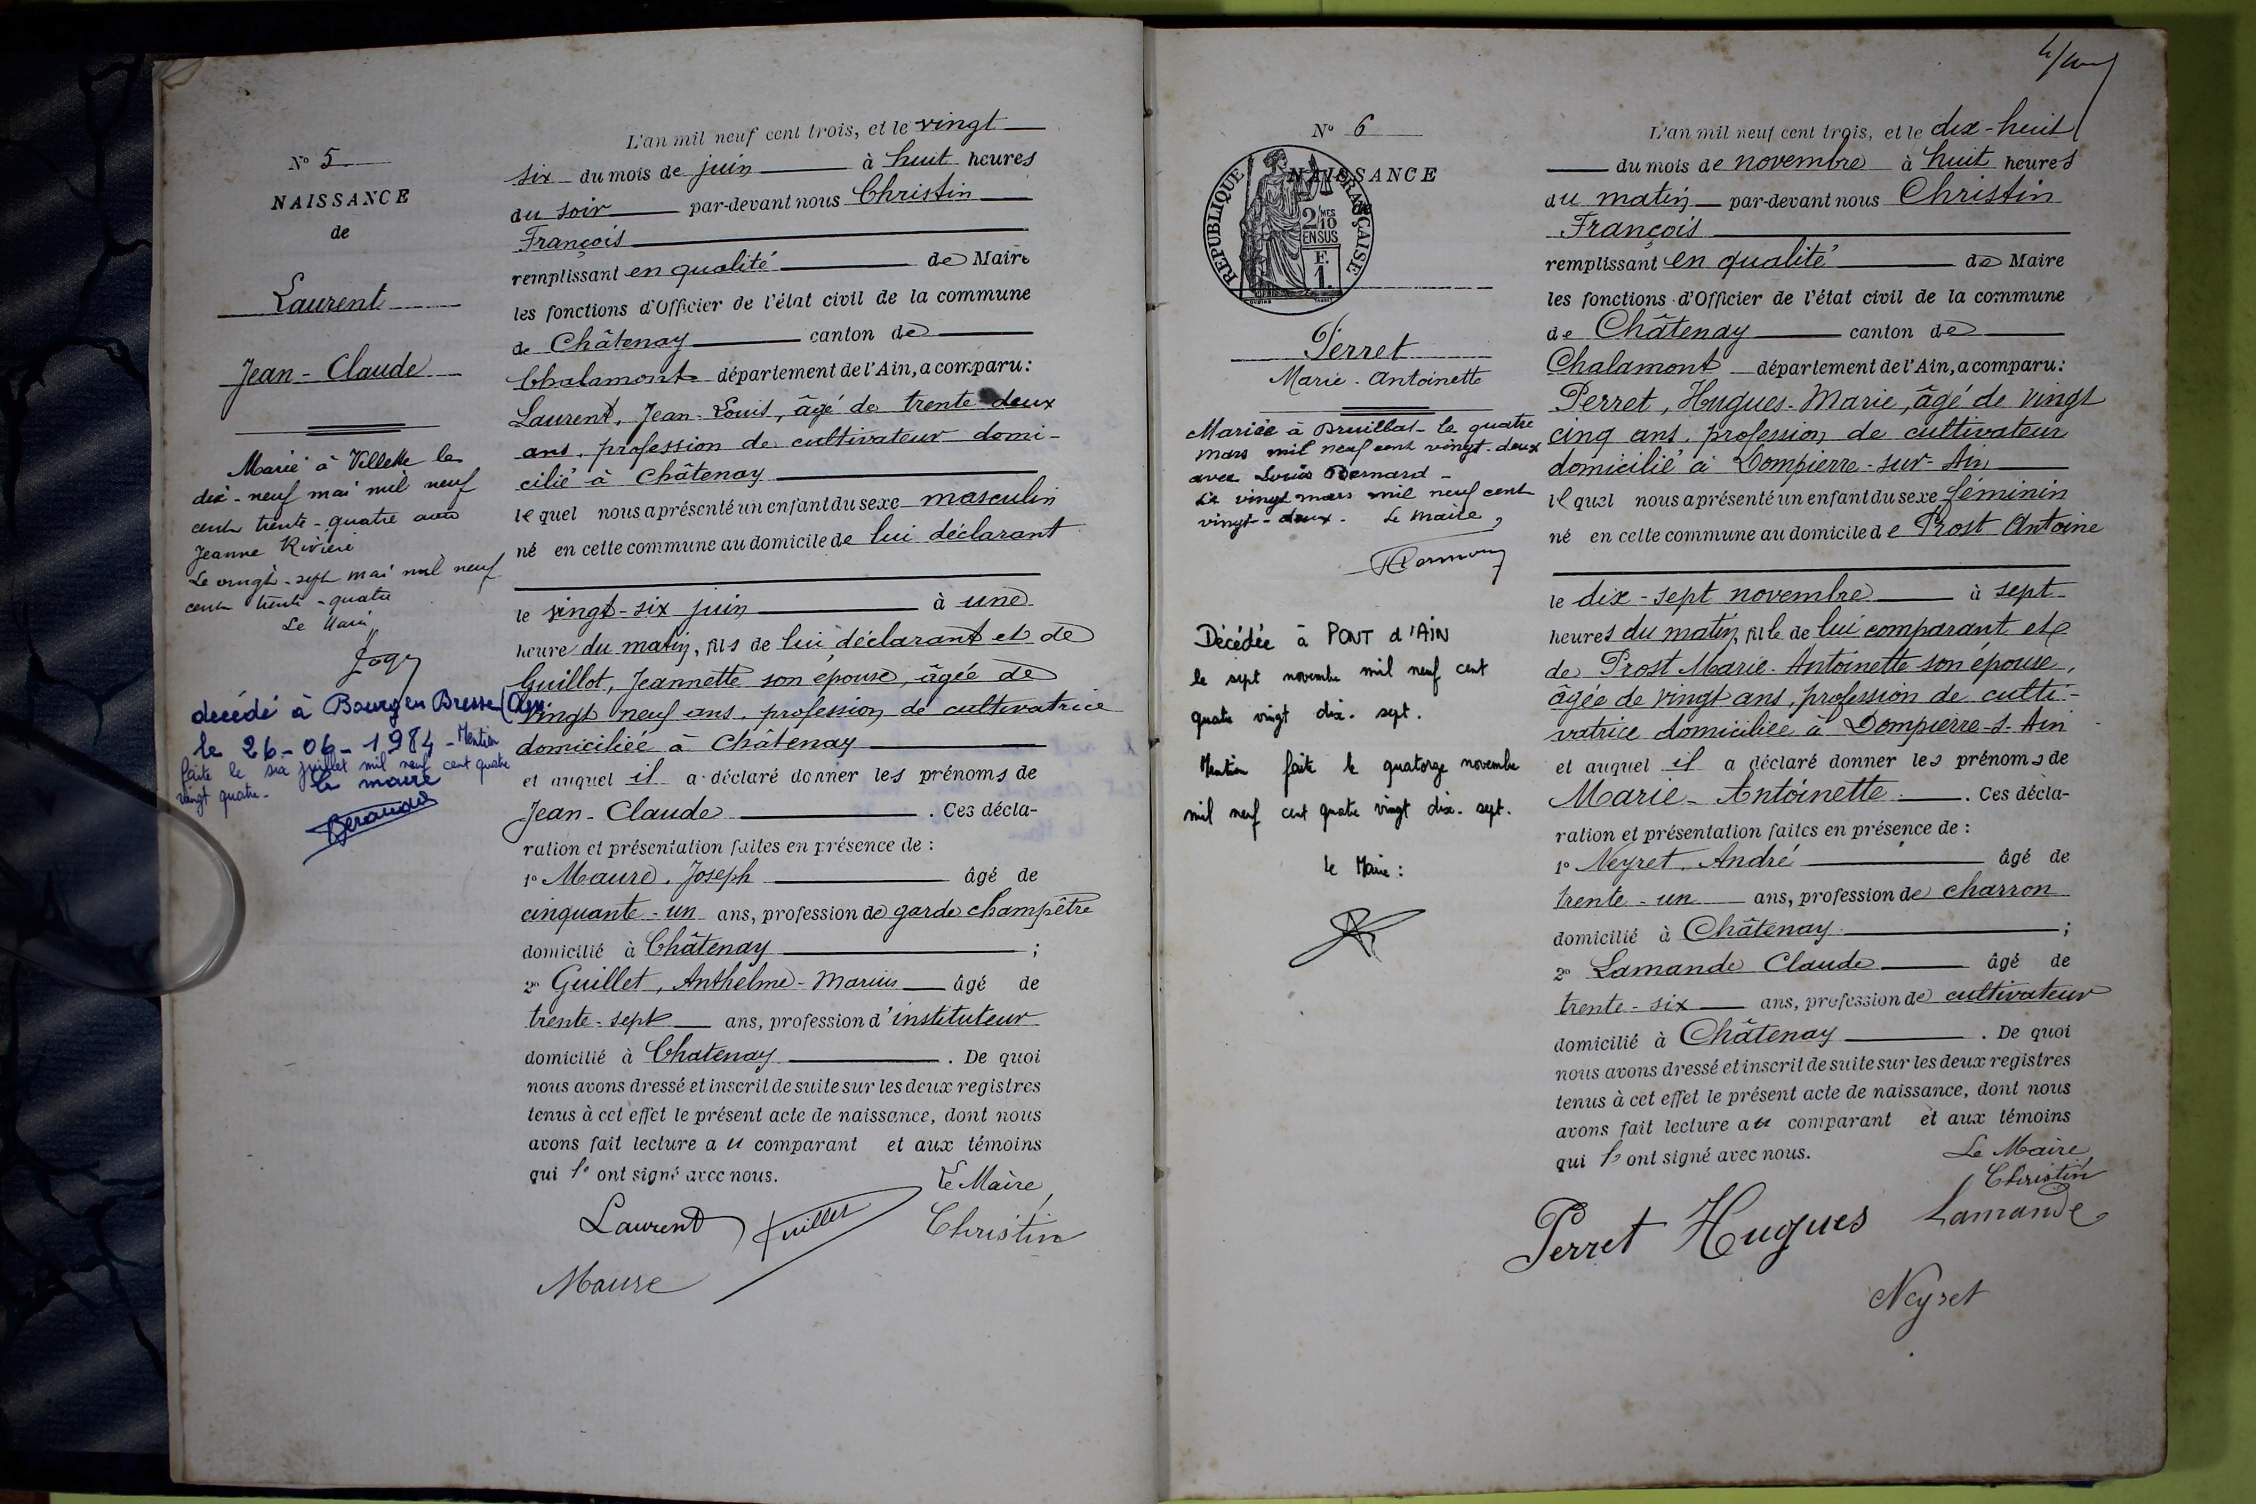 N° 5
NAISSANCE
de
Laurent
Jean-Claude
Marié à Villette le
dix-neuf mai mil neuf
cent trente-quatre avec
Jeanne Rivière
Le vingt-sept mai mil neuf
cent trente-quatre
Le Maire
décédé à Bourg en Bresse (Ain)
le 26-06-1984 - Mention
faite le six juillet mil neuf cent quatre
vingt quatre. le maire
L'an mil neuf cent trois, et le vingt
six du mois de juin à huit heures
du soir par-devant nous Christin
François
remplissant en qualité de Maire
les fonctions d'Officier de l'état civil de la commune
de Châtenay canton de
Chalamont département de l'Ain, a comparu:
Laurent, Jean-Louis, âgé de trente deux
ans, profession de cultivateur domi-
cilié à Châtenay
lequel nous a présenté un enfant du sexe masculin
né en cette commune au domicile de lui déclarant
le vingt-six juin à une
heure du matin, fils de lui déclarant et de
Guillot, Jeannette son épouse, âgée de
vingt neuf ans, profession de cultivatrice
domiciliée à Châtenay
et auquel il a déclaré donner les prénoms de
Jean-Claude. Ces décla-
ration et présentation faites en présence de :
1° Maure, Joseph âgé de
cinquante-un ans, profession de garde champêtre
domicilié à Châtenay ;
2° Guillet, Anthelme-Marius âgé de
trente-sept ans, profession d'instituteur
domicilié à Chatenay. De quoi
nous avons dressé et inscrit de suite sur les deux registres
tenus à cet effet le présent acte de naissance, dont nous
avons fait lecture au comparant et aux témoins
qui l' ont signé avec nous.
Le Maire,
Laurent Guillet Christin
Maure
N° 6
NAISSANCE
de
RÉPUBLIQUE FRANÇAISE
2/10
EN SUS
F.
1.
Perret
Marie-Antoinette
Mariée à Druillat le quatre
mars mil neuf cent vingt-deux
avec Louis Bernard -
Le vingt mars mil neuf cent
vingt-deux. Le Maire,
Décédée à PONT d'AIN
le sept novembre mil neuf cent
quatre vingt dix-sept.
Mention faite le quatorze novembre
mil neuf cent quatre vingt dix-sept.
le Maire :
L'an mil neuf cent trois, et le dix-huit
du mois de novembre à huit heures
du matin par-devant nous Christin
François
remplissant en qualité de Maire
les fonctions d'Officier de l'état civil de la commune
de Châtenay canton de
Chalamont département de l'Ain, a comparu:
Perret, Hugues-Marie, âgé de vingt
cinq ans, profession de cultivateur
domicilié à Dompierre-sur-Ain
lequel nous a présenté un enfant du sexe féminin
né en cette commune au domicile de Prost Antoine
le dix-sept novembre à sept
heures du matin, fille de lui comparant et
de Prost Marie-Antoinette son épouse,
âgée de vingt ans, profession de culti-
vatrice domiciliée à Dompierre-s-Ain
et auquel il a déclaré donner les prénoms de
Marie-Antoinette. Ces décla-
ration et présentation faites en présence de :
1° Neyret, André âgé de
trente-un ans, profession de charron
domicilié à Châtenay ;
2° Lamande Claude âgé de
trente-six ans, profession de cultivateur
domicilié à Châtenay. De quoi
nous avons dressé et inscrit de suite sur les deux registres
tenus à cet effet le présent acte de naissance, dont nous
avons fait lecture au comparant et aux témoins
qui l' ont signé avec nous.
Le Maire,
Christin
Perret Hugues Lamande
Neyret